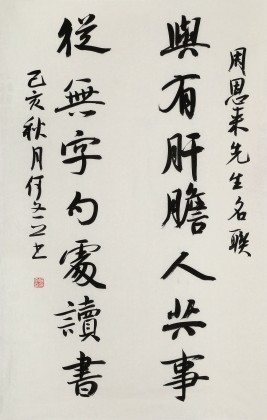 周恩来先生名聯
與有肝膽人共事
從無字句處讀書
己亥秋月付文